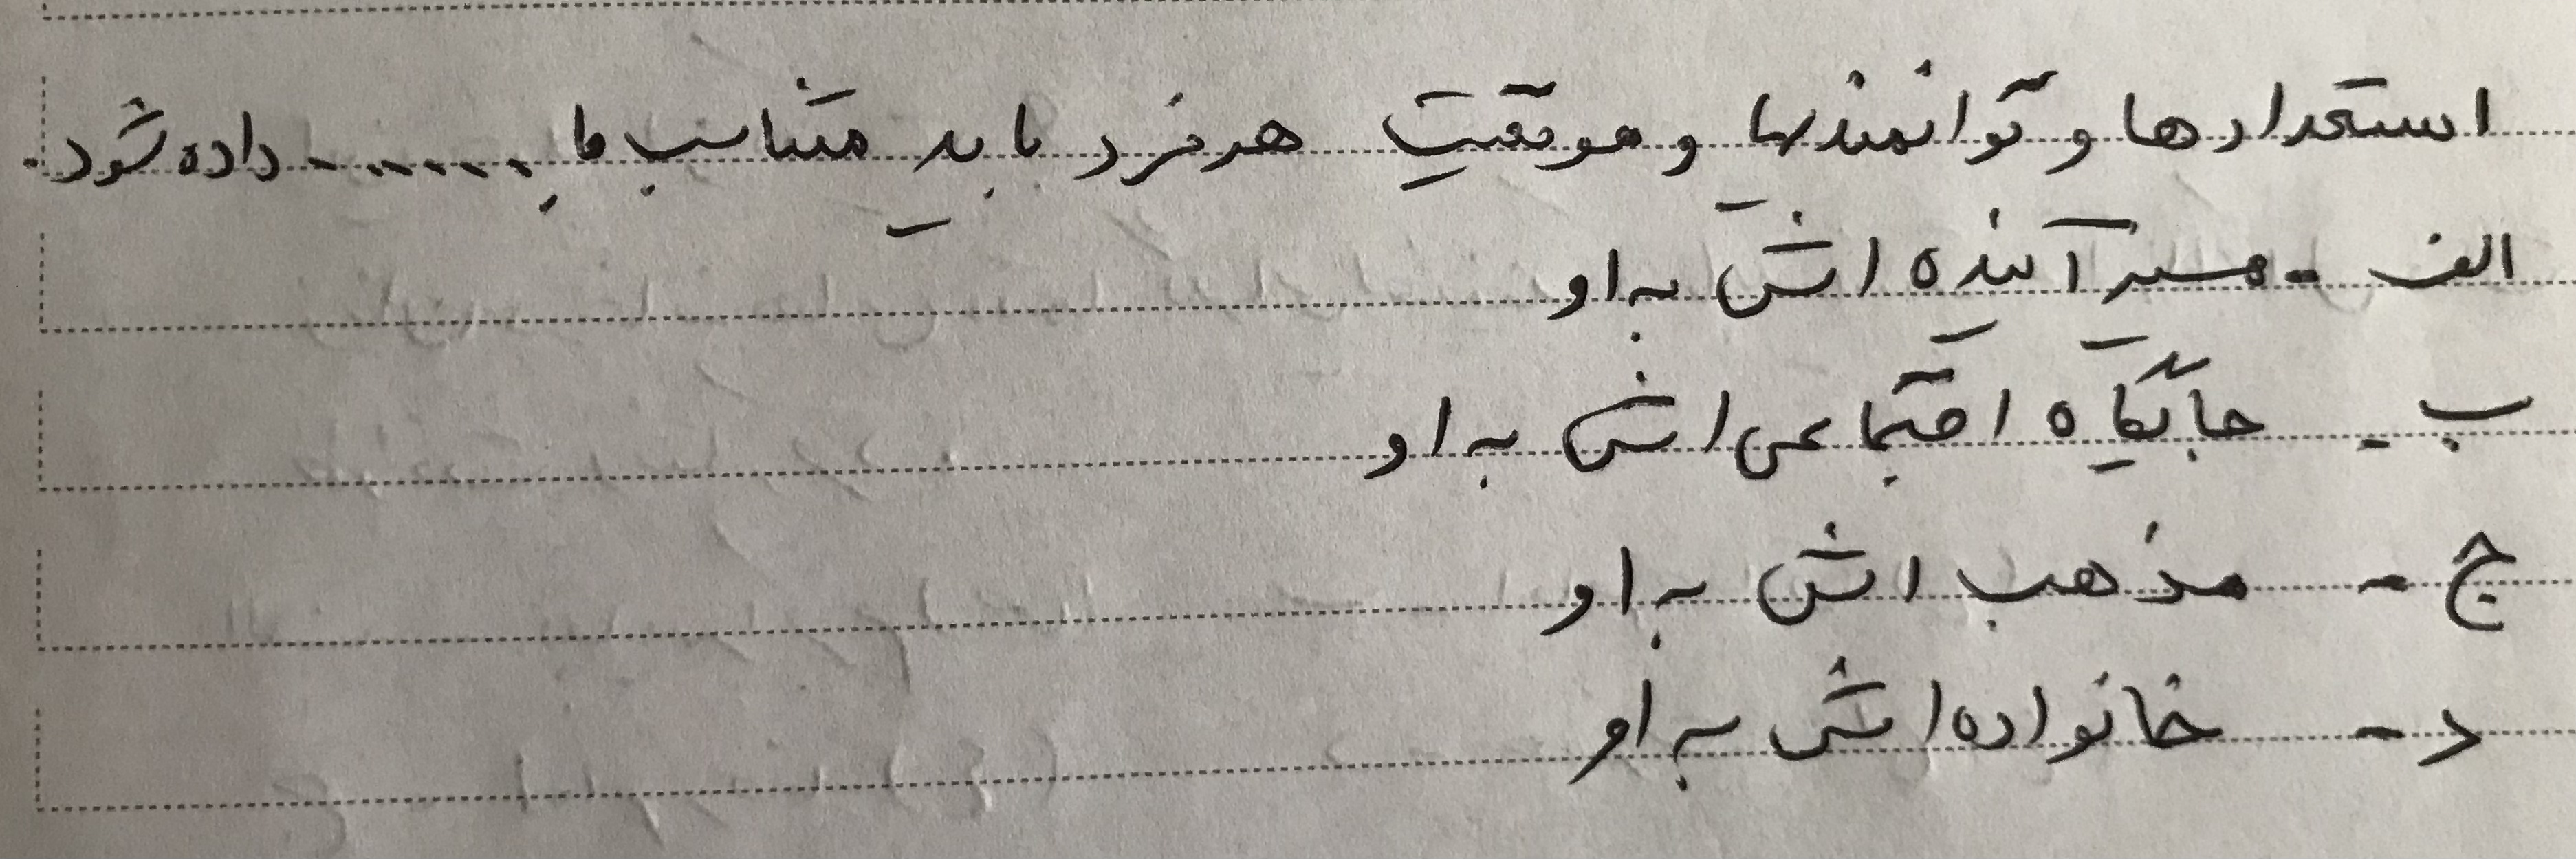 استعدادها و توانمندیها و موقعیت هر فرد باید متناسب با ....... داده شود.
الف - مسیر آینده اش به او
ب - جایگاه اجتماعی اش به او
ج - مذهب اش به او
د - خانواده اش به او